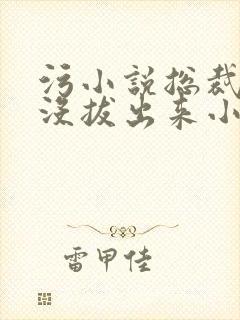 污小说总裁
没拔出来小
雷甲佳